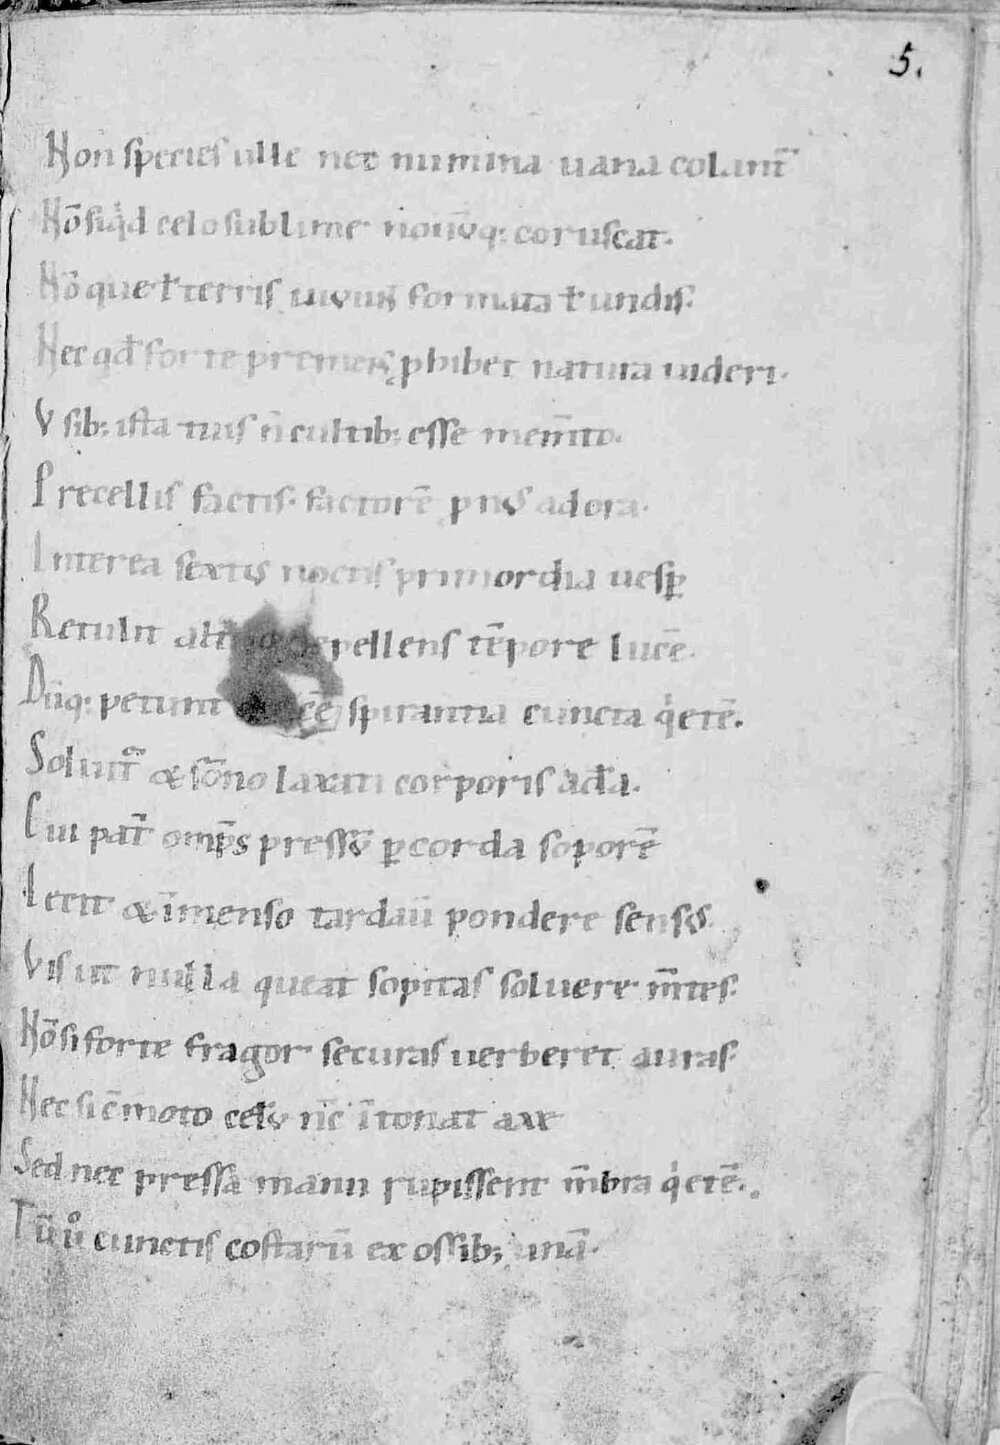 5.
Non species ulle nec numina uana colant᷑
Nō siq́d celo sublime nouūq; coruscat.
Nō que ł terris uiuunt formata ł undis.
Nec qđ forte premens ꝓhibet natura uideri.
Vsib; ista tuis n̄ cultib; esse mem̄to.
Precellis factis. factorē pnus adora.
Interea sextus noctis primordia uesꝑ
Retulit pellens tēpore lucē.
Dūq; petunt spirantia cuncta q́etē.
Soluunt᷑ & sōno laxati corporis acta.
Cui pat̄ omp̄s pressū ꝑ corda soporē
Iecit & īmenso tardauit pondere sensus.
Vis ut nulla queat sopitas soluere m̄tes.
Nō si forte fragor securas uerberet auras.
Nec si c̄moto celū nc̄ ītonat axe
Sed nec pressa manu rupissent m̄bra q́etē.
Tū uº cunctis costarū ex ossib; unā.